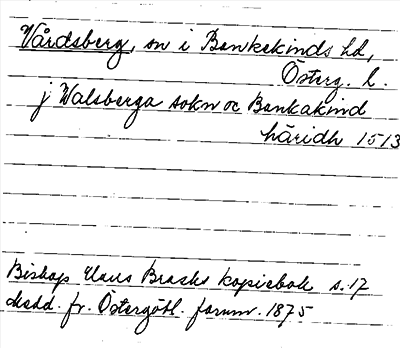 Vårdsberg, sn i Bankekinds hd,
Österg. l.
j Walsberga sokn oc Bankakind
häridh 1513
Biskop Hans Brasks kopiebok s. 17
Medd. fr. Östergötl. fornm. 1875